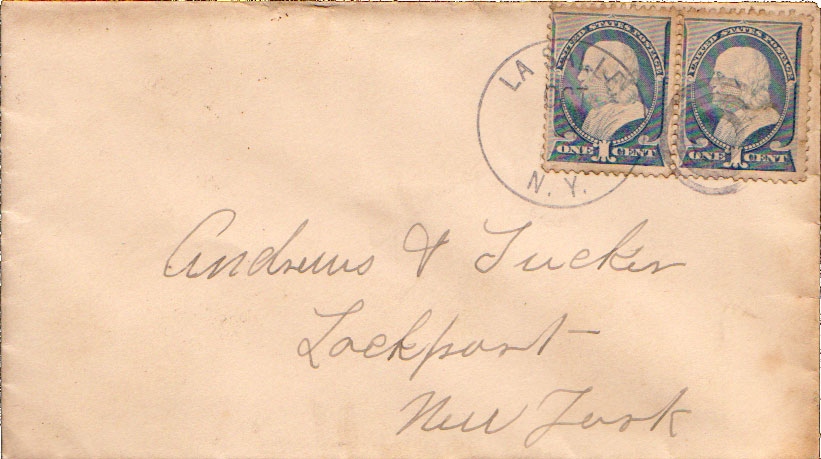 UNITED STATES POSTAGE
UNITED STATES POSTAGE
LA SALLE
ONE 1 CENT
ONE 1 CENT
N. Y.
Andrews & Tucker
Lockport
New York